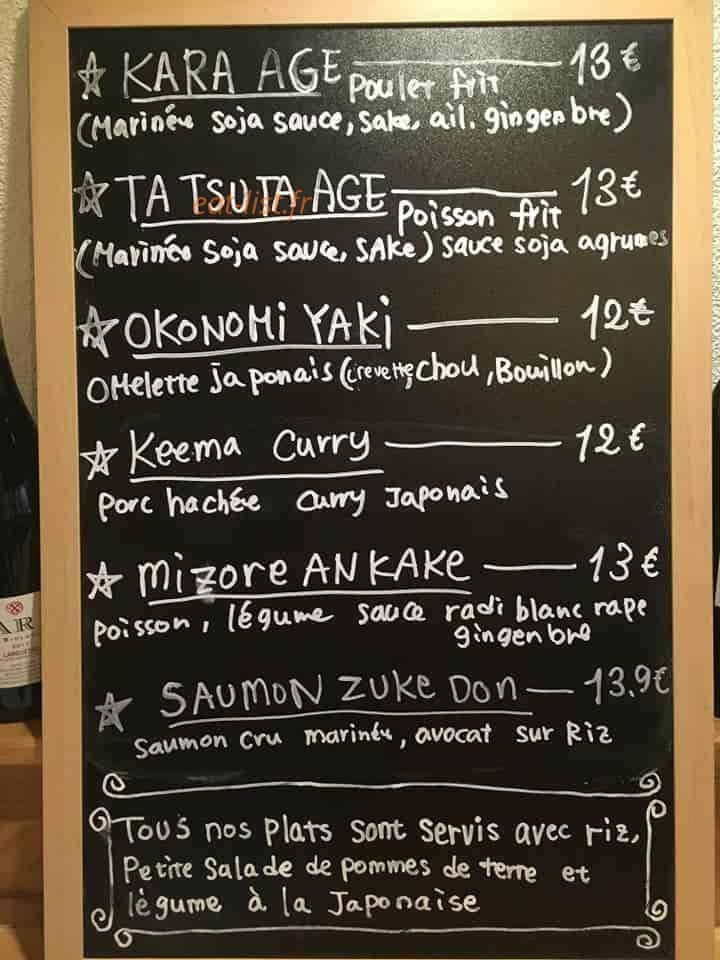 ☆ KARA AGE — 13 €
Poulet frit
(Marinée soja sauce, sake, ail. gingenbre)
☆ TA TSUTA AGE — 13€
eat-list.fr
Poisson frit
(Marinée soja sauce, SAke) sauce soja agrumes
☆ OKONOMI YAKI — 12€
OMelette japonais (crevette, chou, Bouillon)
☆ Keema Curry — 12€
porc hachée curry Japonais
☆ mizore ANKAKE — 13€
poisson, légume sauce radi blanc rape
gingenbre
☆ SAUMON ZUKE Don — 13.9€
Saumon cru marinée, avocat sur Riz
Tous nos plats sont servis avec riz,
Petite Salade de pommes de terre et
légume à la Japonaise